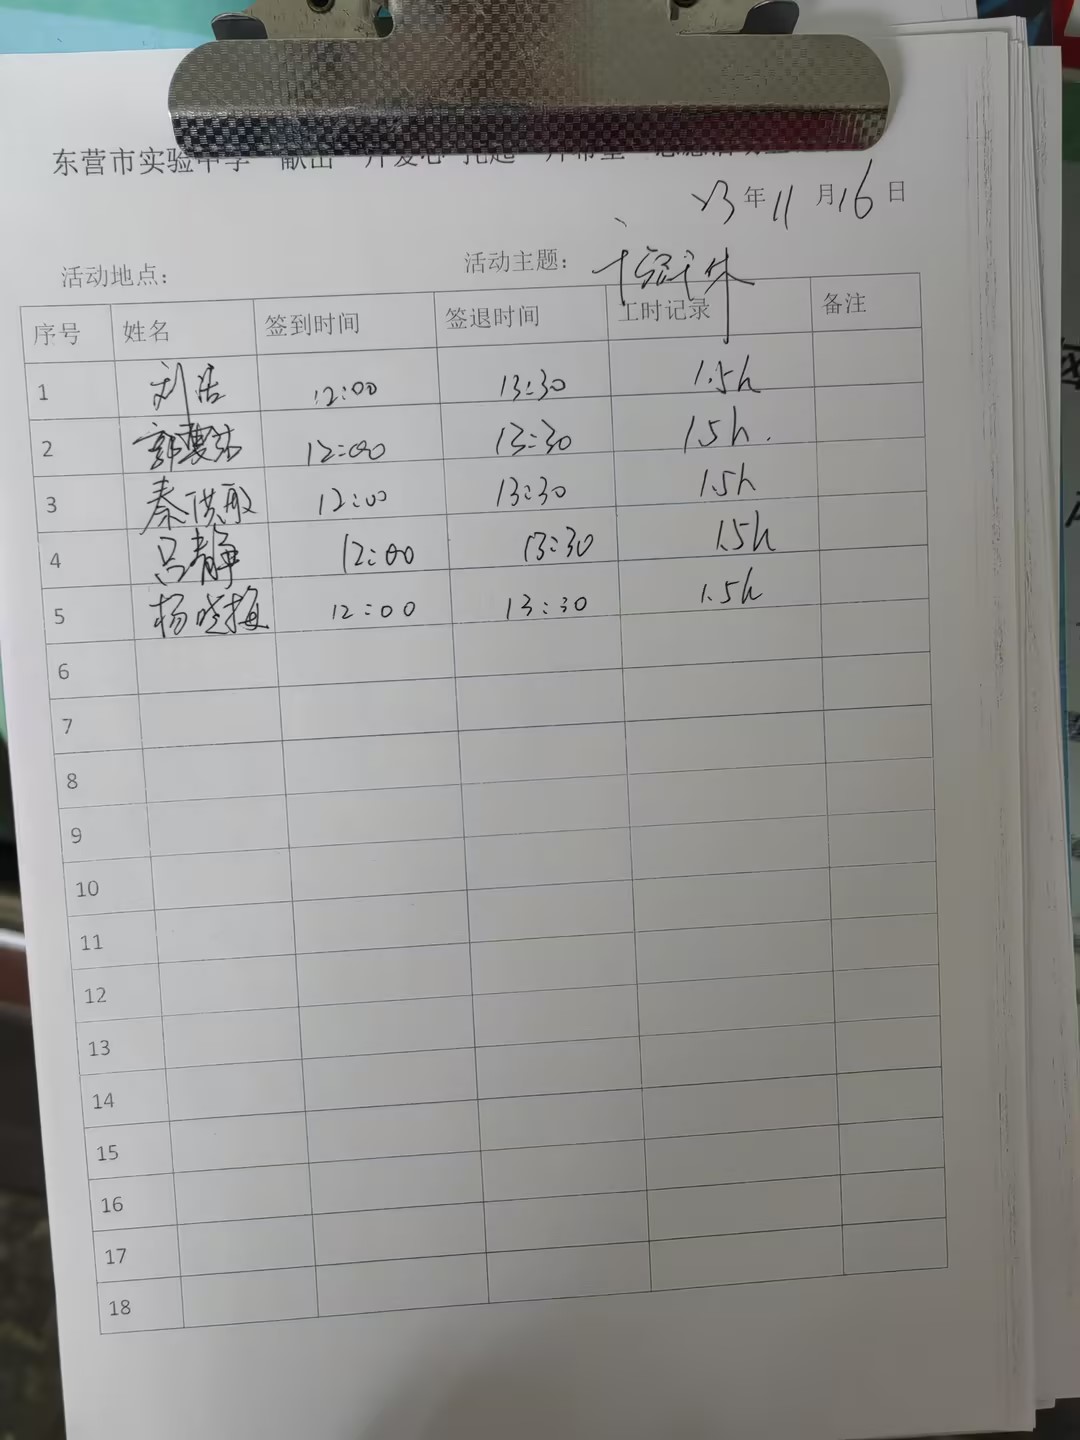 东营市实验中学
23年11月16日
活动地点: 活动主题:
序号 姓名 签到时间 签退时间 工时记录 备注
1 刘浩 12:00 13:30 1.5h
2 12:00 13:30 1.5h.
3 秦洪殿 12:00 13:30 1.5h
4 吕静 12:00 13:30 1.5h
5 杨晓梅 12:00 13:30 1.5h
6
7
8
9
10
11
12
13
14
15
16
17
18